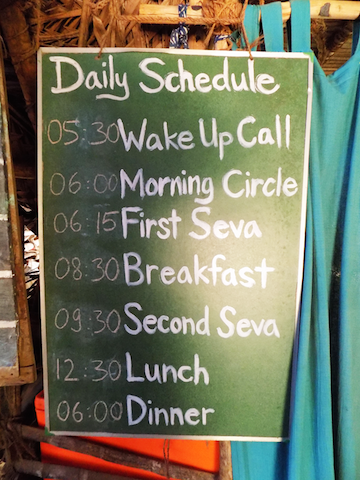 Daily Schedule
05:30 Wake Up Call
06:00 Morning Circle
06:15 First Seva
08:30 Breakfast
09:30 Second Seva
12:30 Lunch
06:00 Dinner